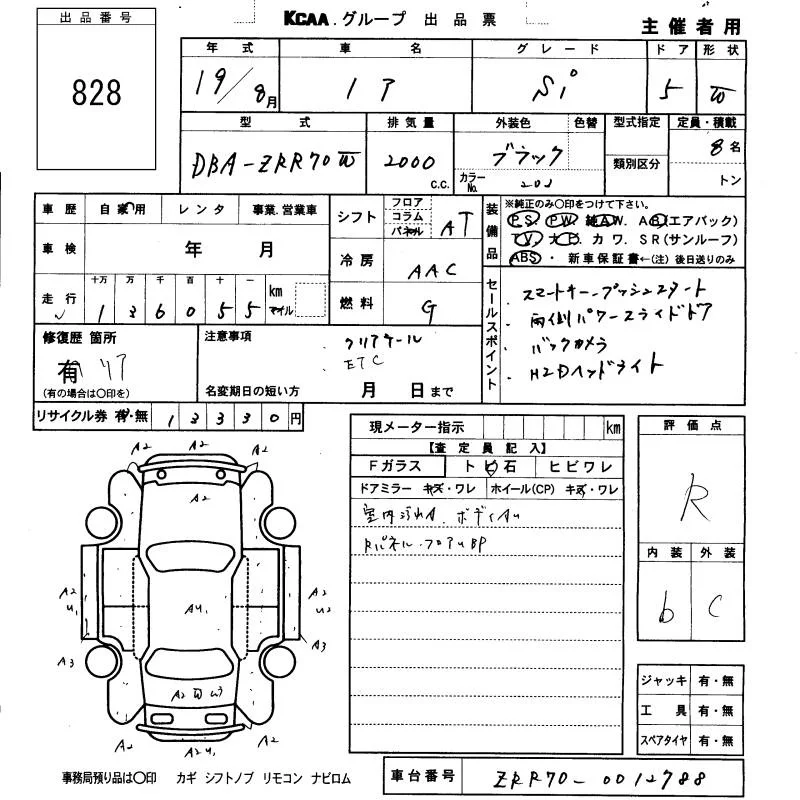 出品番号
828
KCAA.グループ 出品票
主催者用
年式 車名 グレード ドア 形状
19/8月 Si 5 W
型式 排気量 外装色 色替 型式指定 定員・積載
DBA-ZRR70W 2000 c.c. ブラック 類別区分 8名
カラーNo. 202 トン
車歴 自家用 レンタ 事業.営業車
車検 年 月
走行 十万 万 千 百 十 一 km マイル
1 3 6 0 5 5
シフト フロア コラム パネル AT
冷房 AAC
燃料 G
装備品
※純正のみ○印をつけて下さい。
P.S. P.W. 純A.W. A.B(エアバック)
T.V. ナビ カワ. SR(サンルーフ)
ABS・ 新車保証書←(注)後日送りのみ
セールスポイント
スマートキー.プッシュスタート
両側パワースライドドア
バックカメラ
HIDヘッドライト
修復歴 箇所
有 リア
(有の場合は○印を)
注意事項
クリアケール
ETC
名変期日の短い方 月 日まで
リサイクル券 有・無 13330円
現メーター指示 km
【査定員記入】
Fガラス トビ石 ヒビワレ
ドアミラー キズ・ワレ ホイール(CP) キズ・ワレ
室内汚れA.ボディAU
Rパネル.フロアUBP
評価点
R
内装 外装
b C
ジャッキ 有・無
工具 有・無
スペアタイヤ 有・無
A2 A2 A2
A2
A2 U1 AU1 A2 U2
A3 A3
A2
A2 A2U1 A2
事務局預り品は○印 カギ シフトノブ リモコン ナビロム
車台番号 ZRR70-0012788